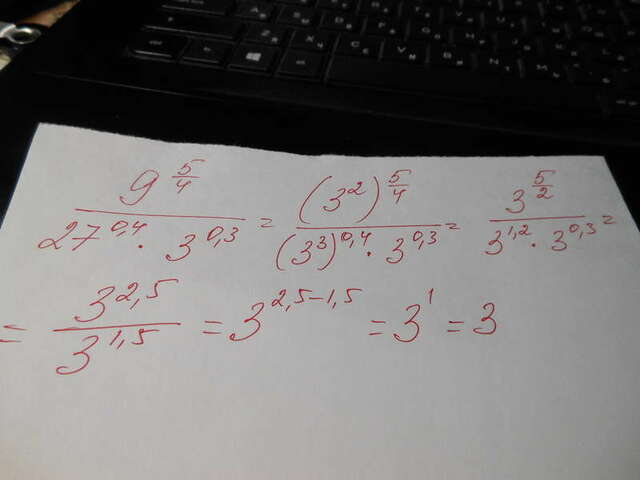 9^{5/4} / (27^{0,4} · 3^{0,3}) = (3^2)^{5/4} / ((3^3)^{0,4} · 3^{0,3}) = 3^{5/2} / (3^{1,2} · 3^{0,3}) =
= 3^{2,5} / 3^{1,5} = 3^{2,5-1,5} = 3^1 = 3